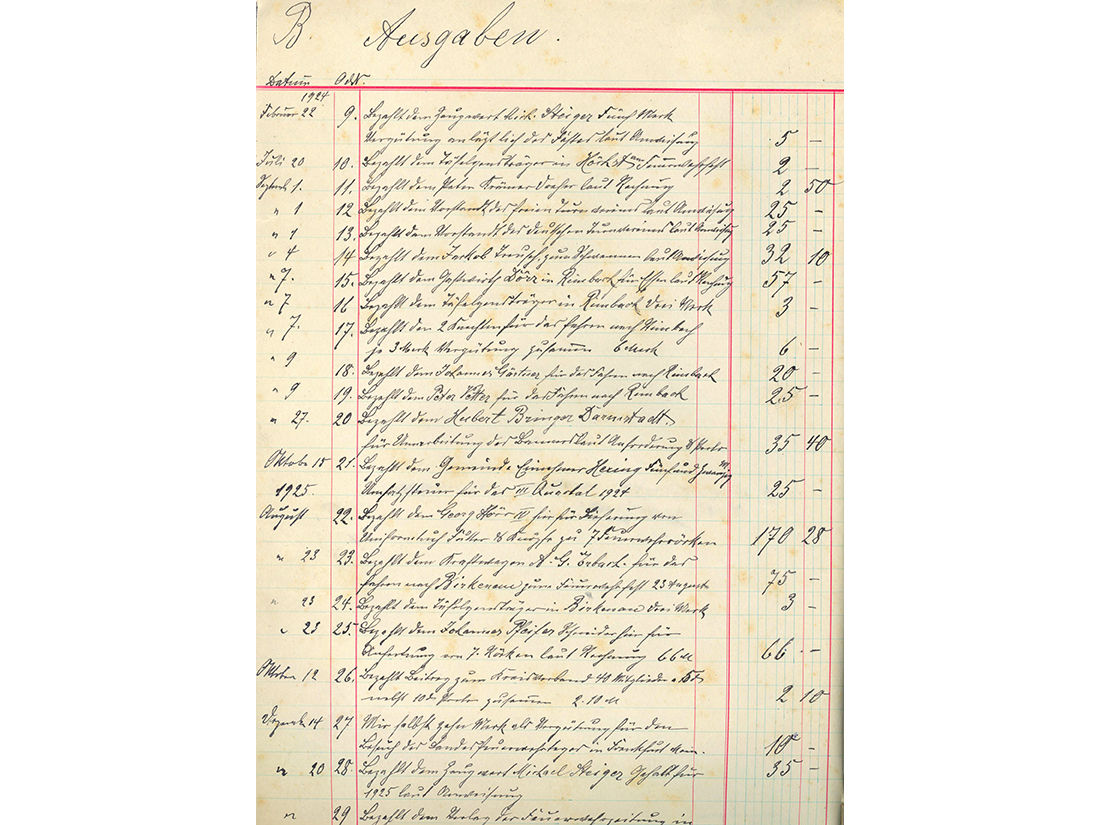 B. Ausgaben.
Datum OdN.
1924
Februar 22 9. Bezahlt dem Zeugwart Mich. Steiger Fünf Mark
Vergütung anläßlich des Festes laut Anweisung 5 –
Juli 20 10. Bezahlt dem Täfelgensträger in Höchst am Feuerwehrfest 2 –
Septemb. 1. 11. Bezahlt dem Peter Krämer Dreher laut Rechnung 2 50
" 1 12 Bezahlt dem Vorstandt des freien Turnvereins laut Anweisung 25 –
" 1 13. Bezahlt dem Vorstandt des Deutschen Turnvereins laut Anweisung 25 –
" 4 14 Bezahlt dem Jackob Treusch zum Schwannen laut Anweisung 32 10
" 7. 15. Bezahlt dem Gastwirth Dörr in Rimbach für Essen laut Rechnung 57 –
" 7 16 Bezahlt dem Täfelgensträger in Rimbach Drei Mark 3 –
" 7. 17. Bezahlt den 2 Knechten für das fahren nach Rimbach
je 3 Mark Vergütung zusammen 6 Mark 6 –
" 9 18. Bezahlt dem Johannes Gärtner für das Fahren nach Rimbach 20 –
" 9 19. Bezahlt dem Peter Vetter für das Fahren nach Rimbach 25 –
" 27. 20 Bezahlt dem Hubert Bringer Darmstadt
für Umarbeitung des Banners laut Anforderung & Porto 35 40
Oktober 18 21. Bezahlt dem Gemeinde Einnehmer Hering Fünfundzwanzig M
Umsatzsteuer für das III Quartal 1924 25 –
1925.
August 22. Bezahlt dem Georg IV für Lieferung von
Uniformtuch Futter & Knöpfe zu 7 Feuerwehrröcken 170 28
" 23 23. Bezahlt dem Kraftwagen A. G. Erbach für das
fahren nach Birkenau zum Feuerwehrfest 23 August 75 –
" 23 24. Bezahlt dem Täfelgensträger in Birkenau Drei Mark 3 –
" 23 25. Bezahlt dem Johannes Pfeifer Schneider hier für
Anfertung von 7. Röcken laut Rechnung 66 M 66 –
Oktober 12 26. Bezahlt Beitrag zum Kreisverband 40 Mitglieder a
nebst 10 d Porto zusammen 2.10 M 2 10
Dezemb 14 27 Mir selbst zehn Mark als Vergütung für den
Besuch des Landesfeuerwehrtages in Frankfurt 10 –
" 20 28. Bezahlt dem Zeugwart Michael Steiger Gehalt für
1925 laut Anweisung 35 –
" 29 Bezahlt dem Verlag der Feuerwehrzeitung in